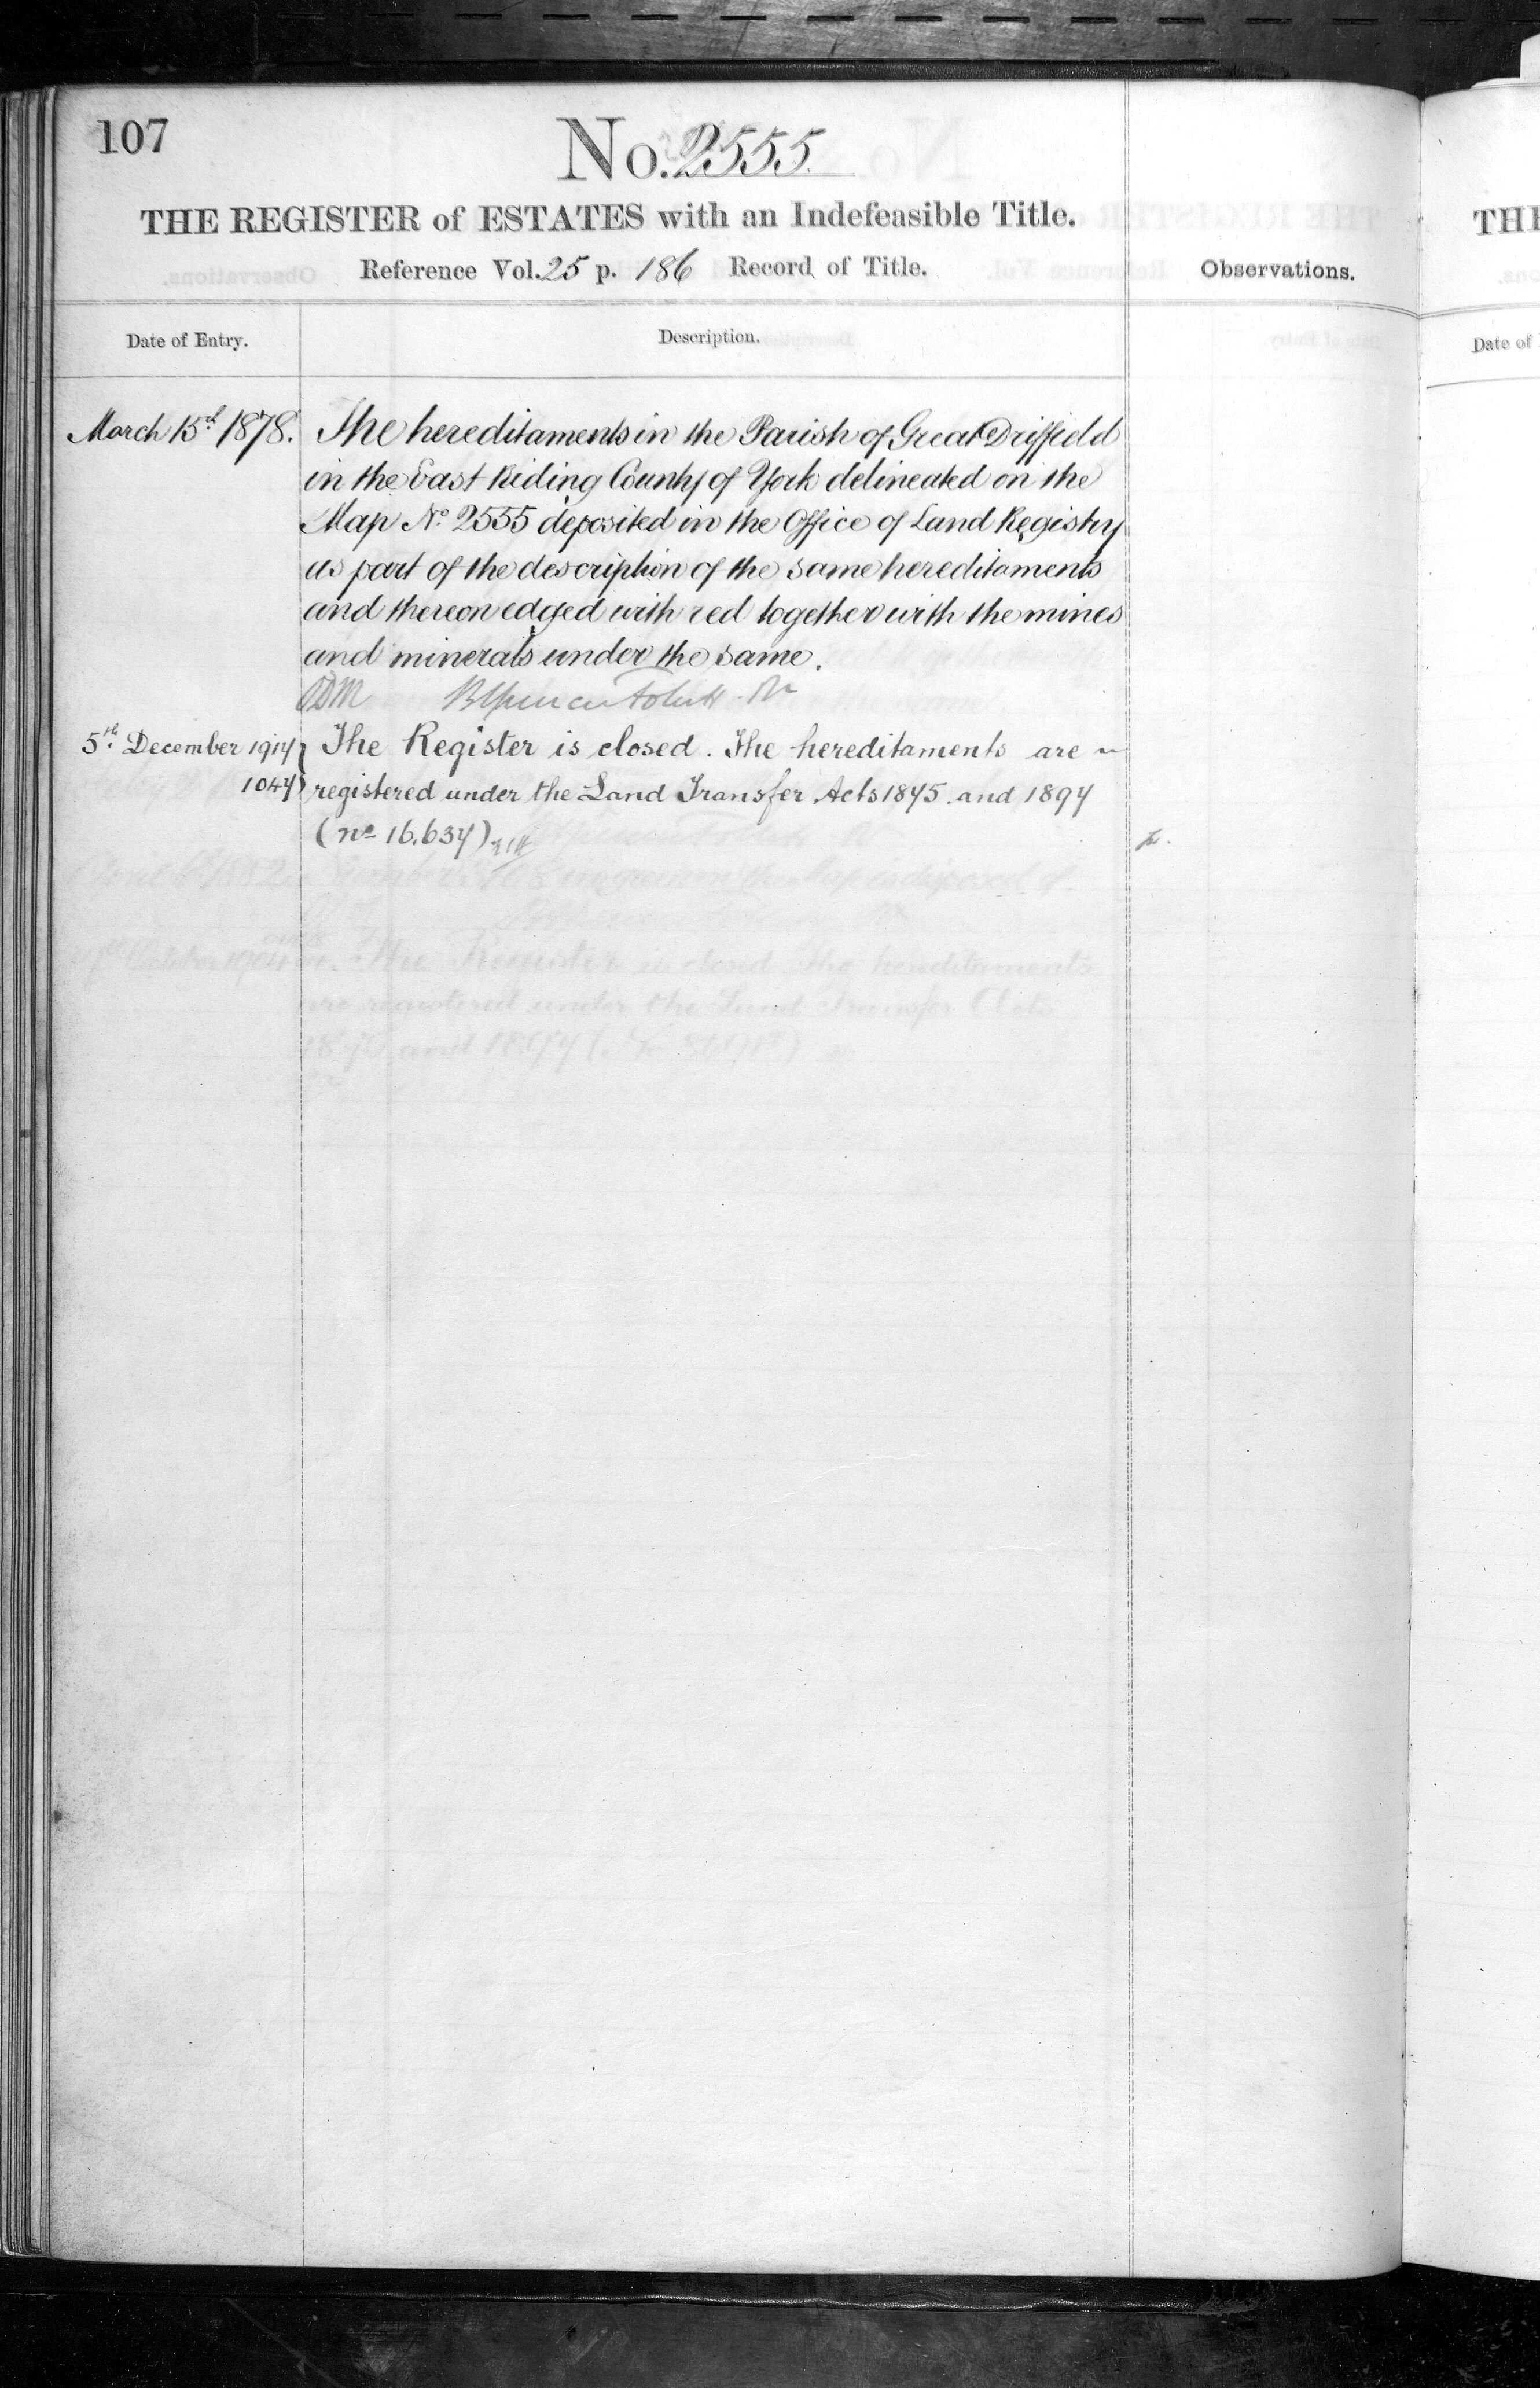 107
No. 2555
THE REGISTER of ESTATES with an Indefeasible Title.
Reference Vol. 25 p. 186 Record of Title.
Observations.
Date of Entry.
Description.
March 15th 1878. The hereditaments in the Parish of Great Driffield
in the East Riding County of York delineated on the
Map No. 2555 deposited in the Office of Land Registry
as part of the description of the same hereditaments
and thereon edged with red together with the mines
and minerals under the same.
5th December 1917 The Register is closed. The hereditaments are
1047 registered under the Land Transfer Acts 1875 and 1897
(no 16.637)
THE
Date of